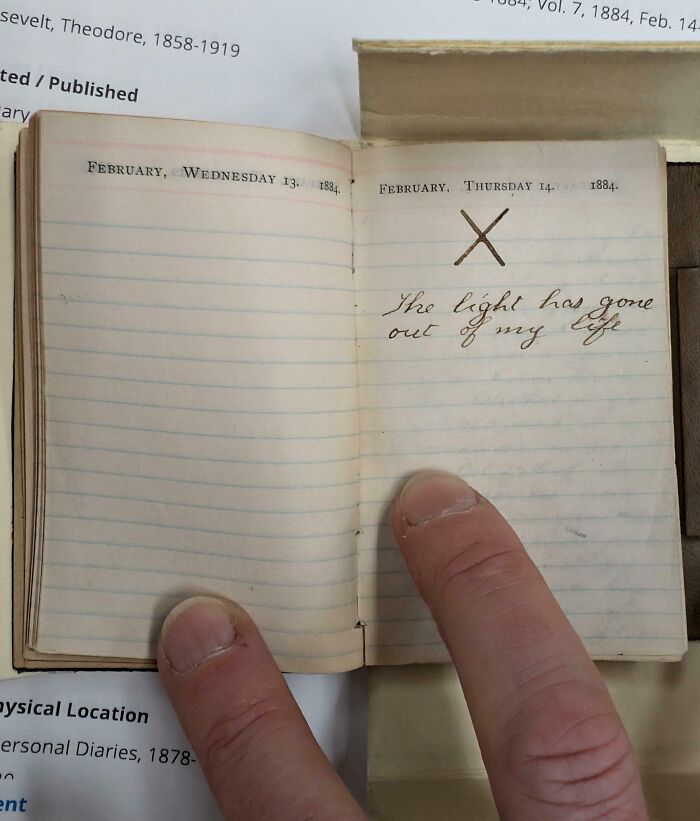 sevelt, Theodore, 1858-1919
1884; Vol. 7, 1884, Feb. 14
ted / Published
uary
FEBRUARY, WEDNESDAY 13. 1884.
FEBRUARY, THURSDAY 14. 1884.
X
The light has gone
out of my life
hysical Location
ersonal Diaries, 1878-
ent